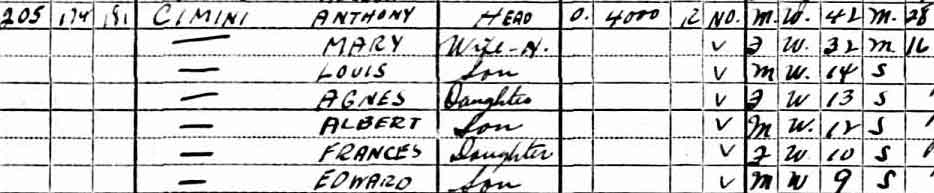 205 174 181 CIMINI ANTHONY HEAD O. 4000 R NO. M. W. 42 M. 28
— MARY Wife-H. V F W. 32 M 16
— LOUIS Son V M W. 14 S
— AGNES Daughter V F W 13 S
— ALBERT Son V M W. 12 S
— FRANCES Daughter V F W. 10 S
— EDWARD Son V M W 9 S